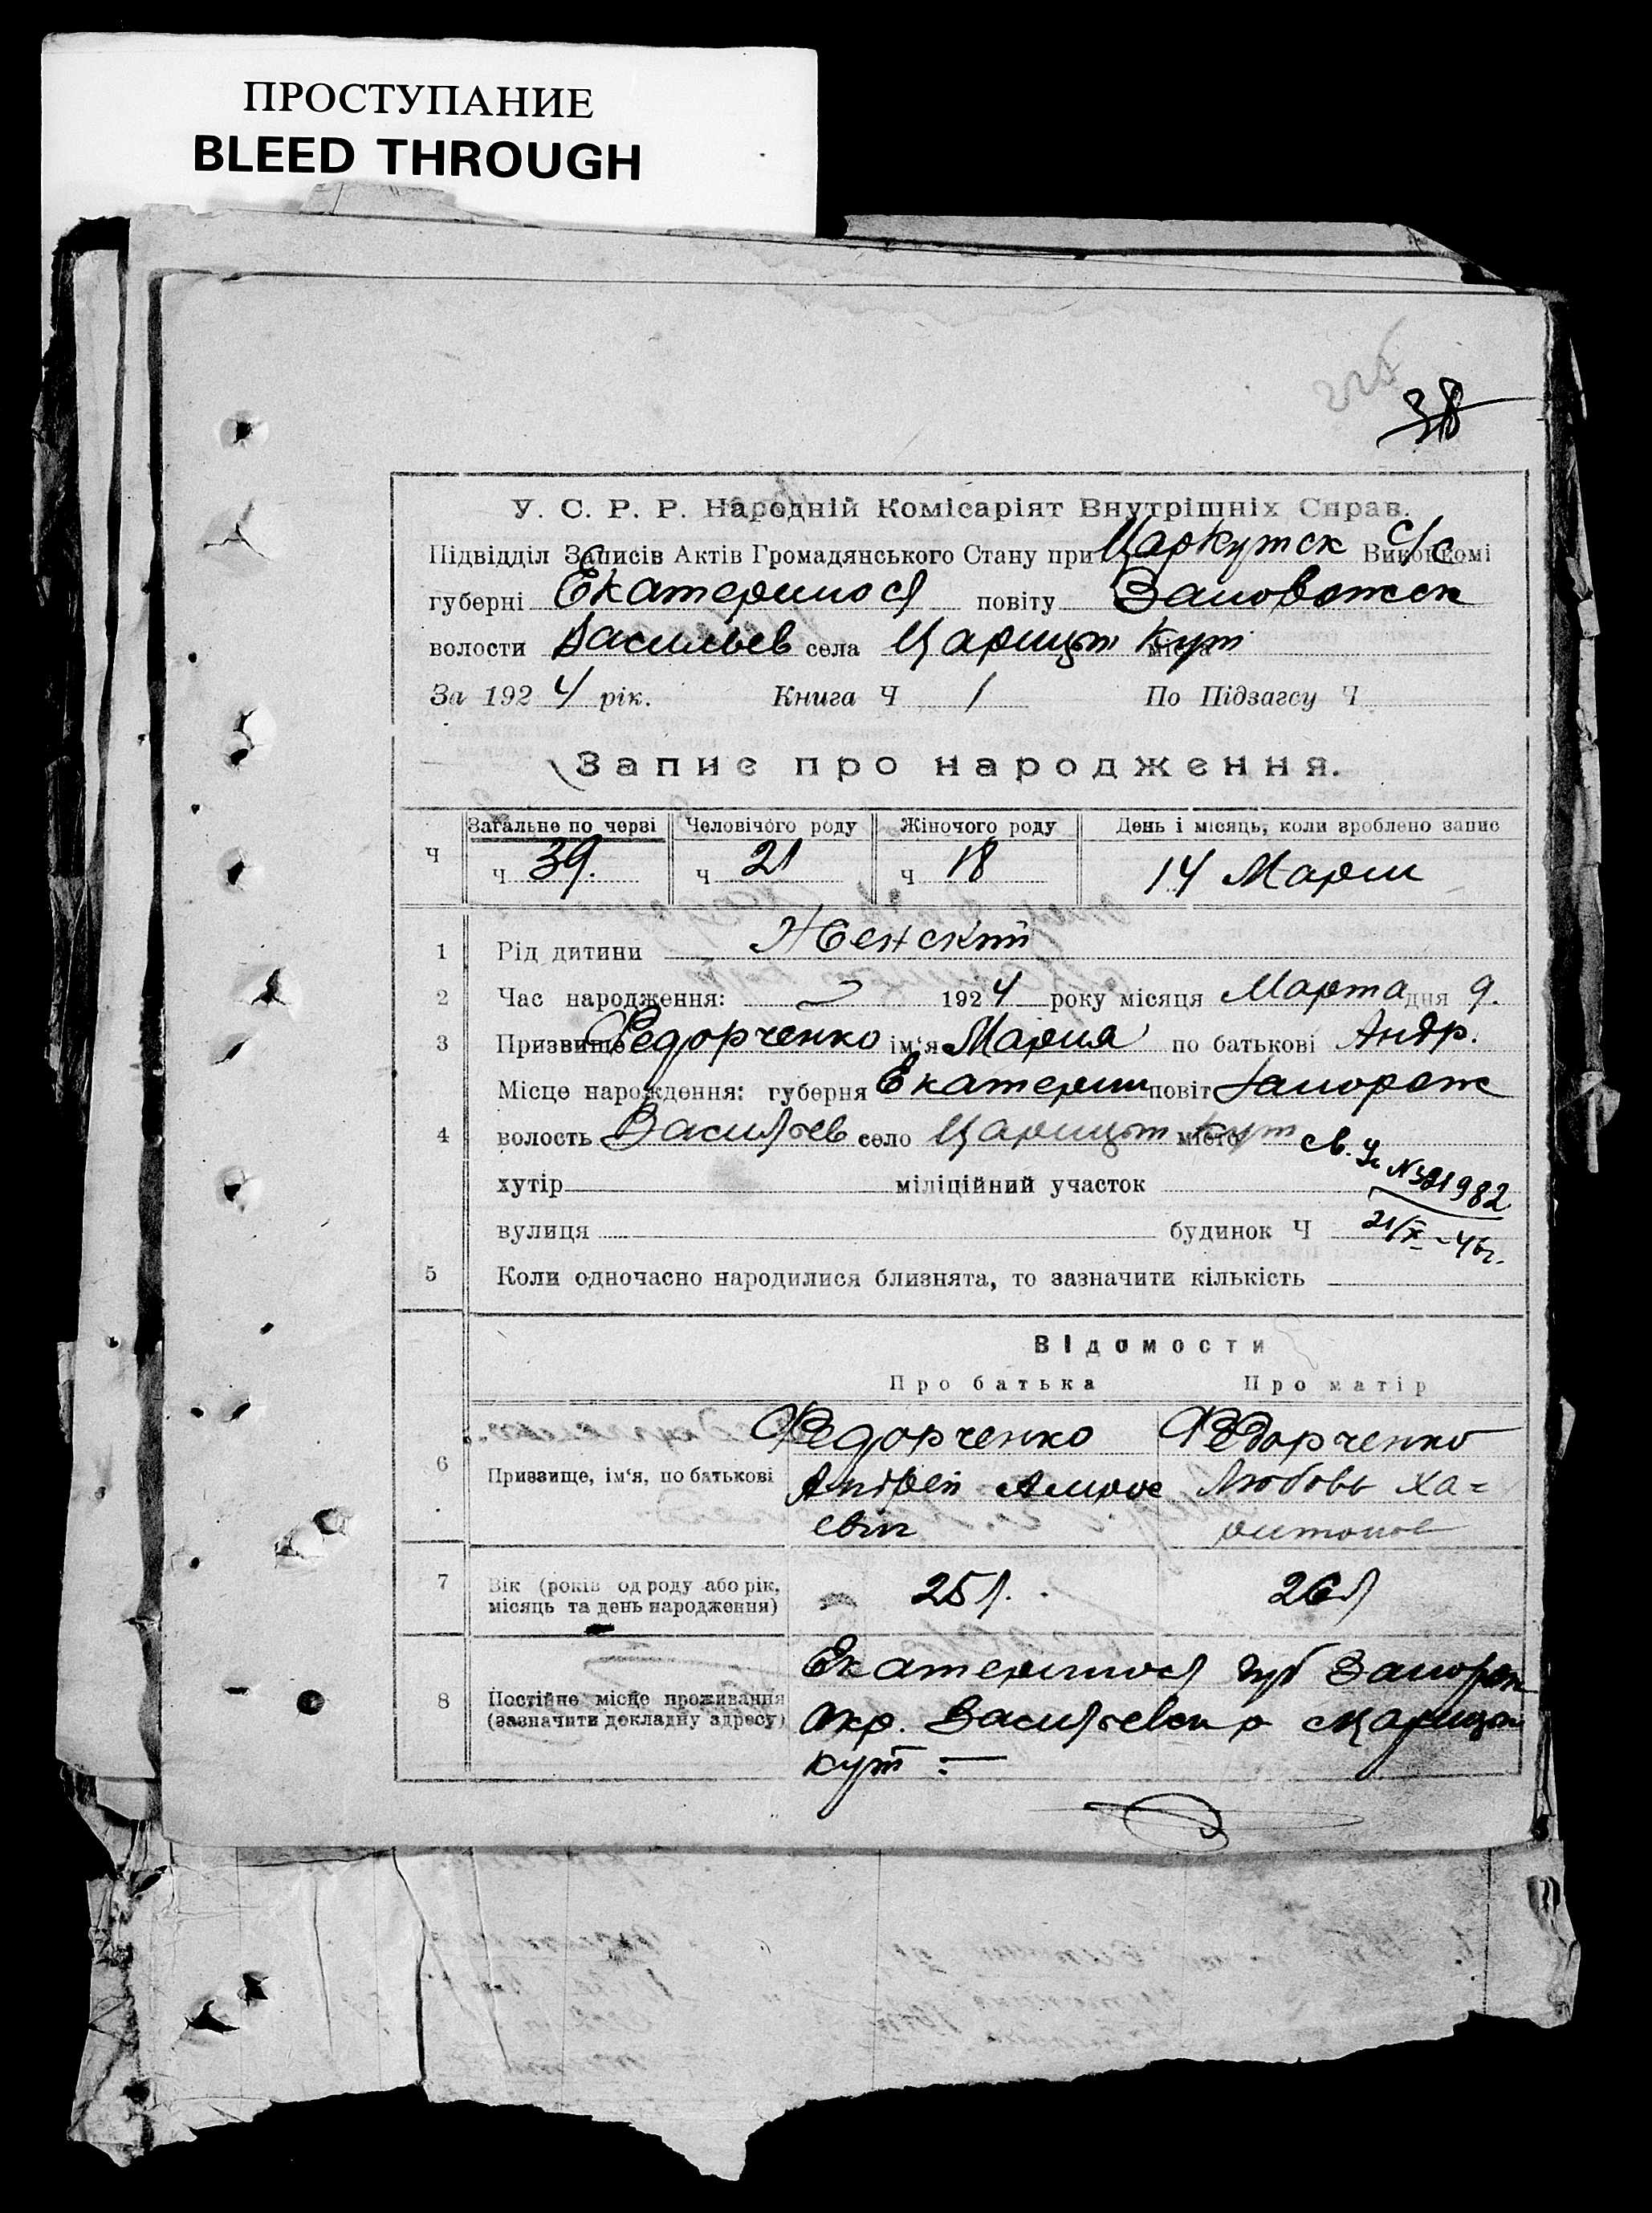 ПРОСТУПАНИЕ
BLEED THROUGH
38
У. С. Р. Р. Народній Комісаріят Внутрішніх Справ.
Підвідділ Записів Актів Громадянського Стану при Царкутск с/с Виконкомі
губерні Екатериносл повіту
волости Васильев села Царицын Кут міста
За 1924 рік. Книга Ч 1 По Підзагсу Ч
Запис про народження.
Ч Загальне по черзі Человічого роду Жіночого роду День і місяць, коли зроблено запис
Ч 39. Ч 21 Ч 18 14 Марта
1 Рід дитини Женский
2 Час народження: 1924 року місяця Марта дня 9.
3 Призвище Федорченко ім'я Мария по батькові Андр.
Місце народження: губерня Екатерин повіт Запорож
4 волость Васильев село Царицын місто Кут
св. Ус №321982
хутір міліційний участок
21/X-46г.
вулиця будинок Ч
5 Коли одночасно народилися близнята, то зазначити кількість
Відомости
Про батька Про матір
6 Призвище, ім'я, по батькові Федорченко Федорченко
Андрей Амрос Любовь Ха=
евич ритонов
7 Вік (років од роду або рік, місяць та день народження) 25 л. 26 л
8 Постійне місце проживання (зазначити докладну адресу) Екатериносл губ Запорож
окр. Васильевск р с Царицын
кут